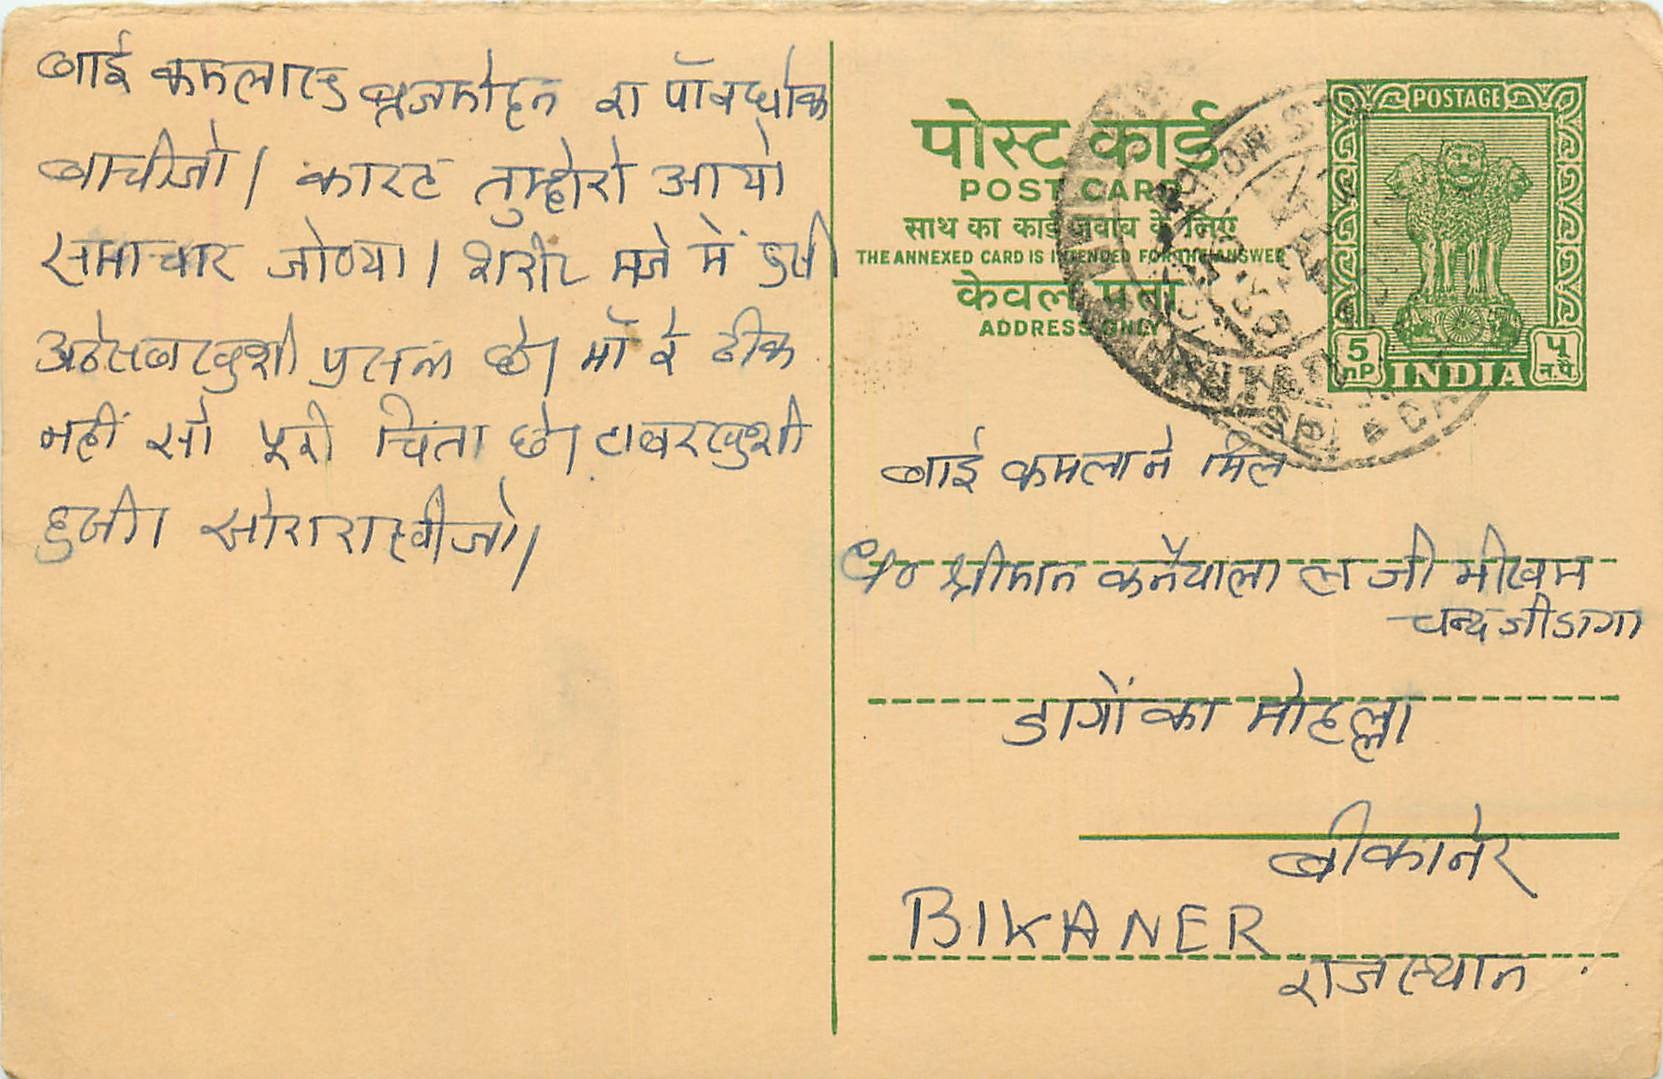 बाई कमलाऊं ब्रजमोहन रा पाँवधोक
बाचीजो। कारट तुम्होरो आयो
समाचार जोण्या। शरीर मजे में हुसी
अठेसबखुशी प्रसन्न छे। माँ रे ठीक
नहीं सो पूरी चिंता छे। टाबरखुशी
हुसी। सोरारास्वीजो।
पोस्ट कार्ड
POST CARD
साथ का कार्ड जवाब के लिए
THE ANNEXED CARD IS INTENDED FOR THE ANSWER
केवल पता
ADDRESS ONLY
POSTAGE
5 nP INDIA ५ न.पै.
बाई कमलाने मिले
C/o श्रीमान कनैयालालजी भीखम
चन्दजीडागा
डागों का मोहल्ला
बीकानेर
BIKANER
राजस्थान